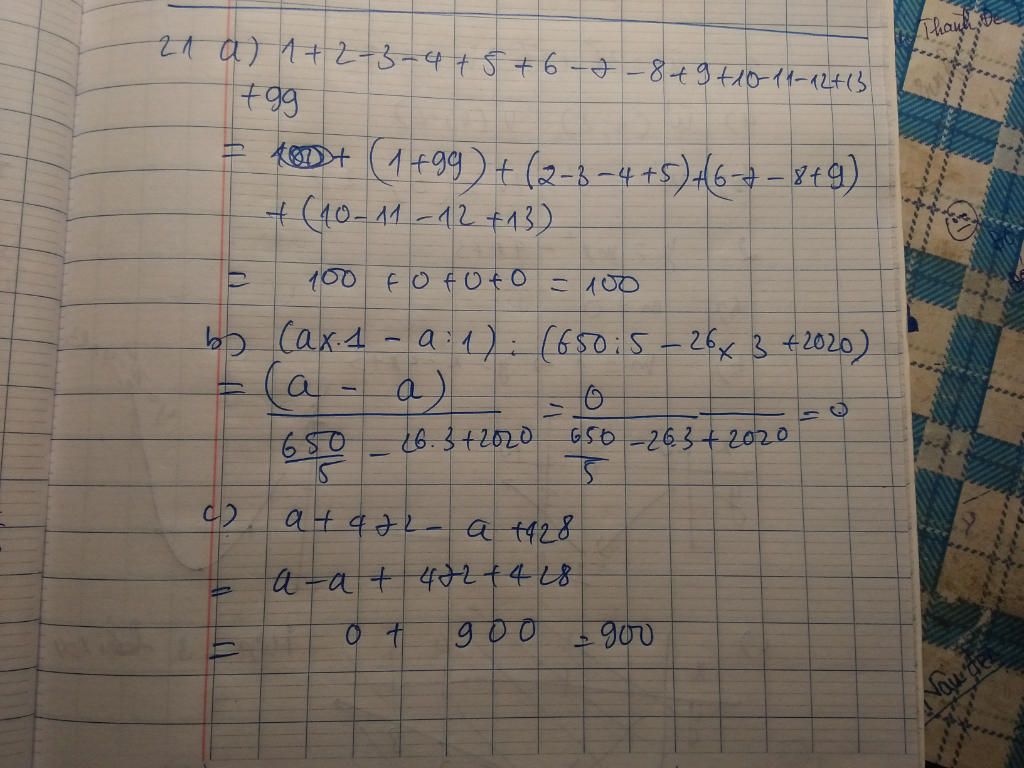 21 a) 1+2-3-4+5+6-7-8+9+10-11-12+13
+99
= + (1+99)+(2-3-4+5)+(6-7-8+9)
+(10-11-12+13)
= 100+0+0+0=100
b) (a×1-a:1):(650:5-26×3+2020)
= (a-a)/(650/5-26.3+2020) = 0/(650/5-263+2020) = 0
c) a+472-a+428
= a-a+472+428
= 0+900=900
Thanh